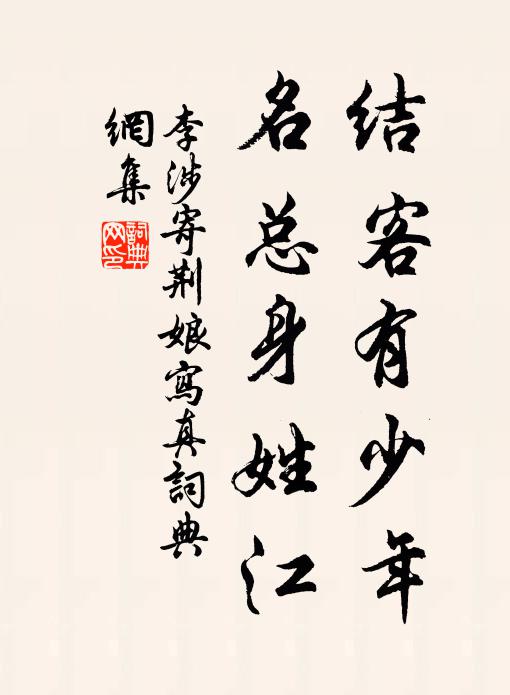 结客有少年
名总身姓江
李涉寄荆娘寫真詞典
網集
詞典
网印